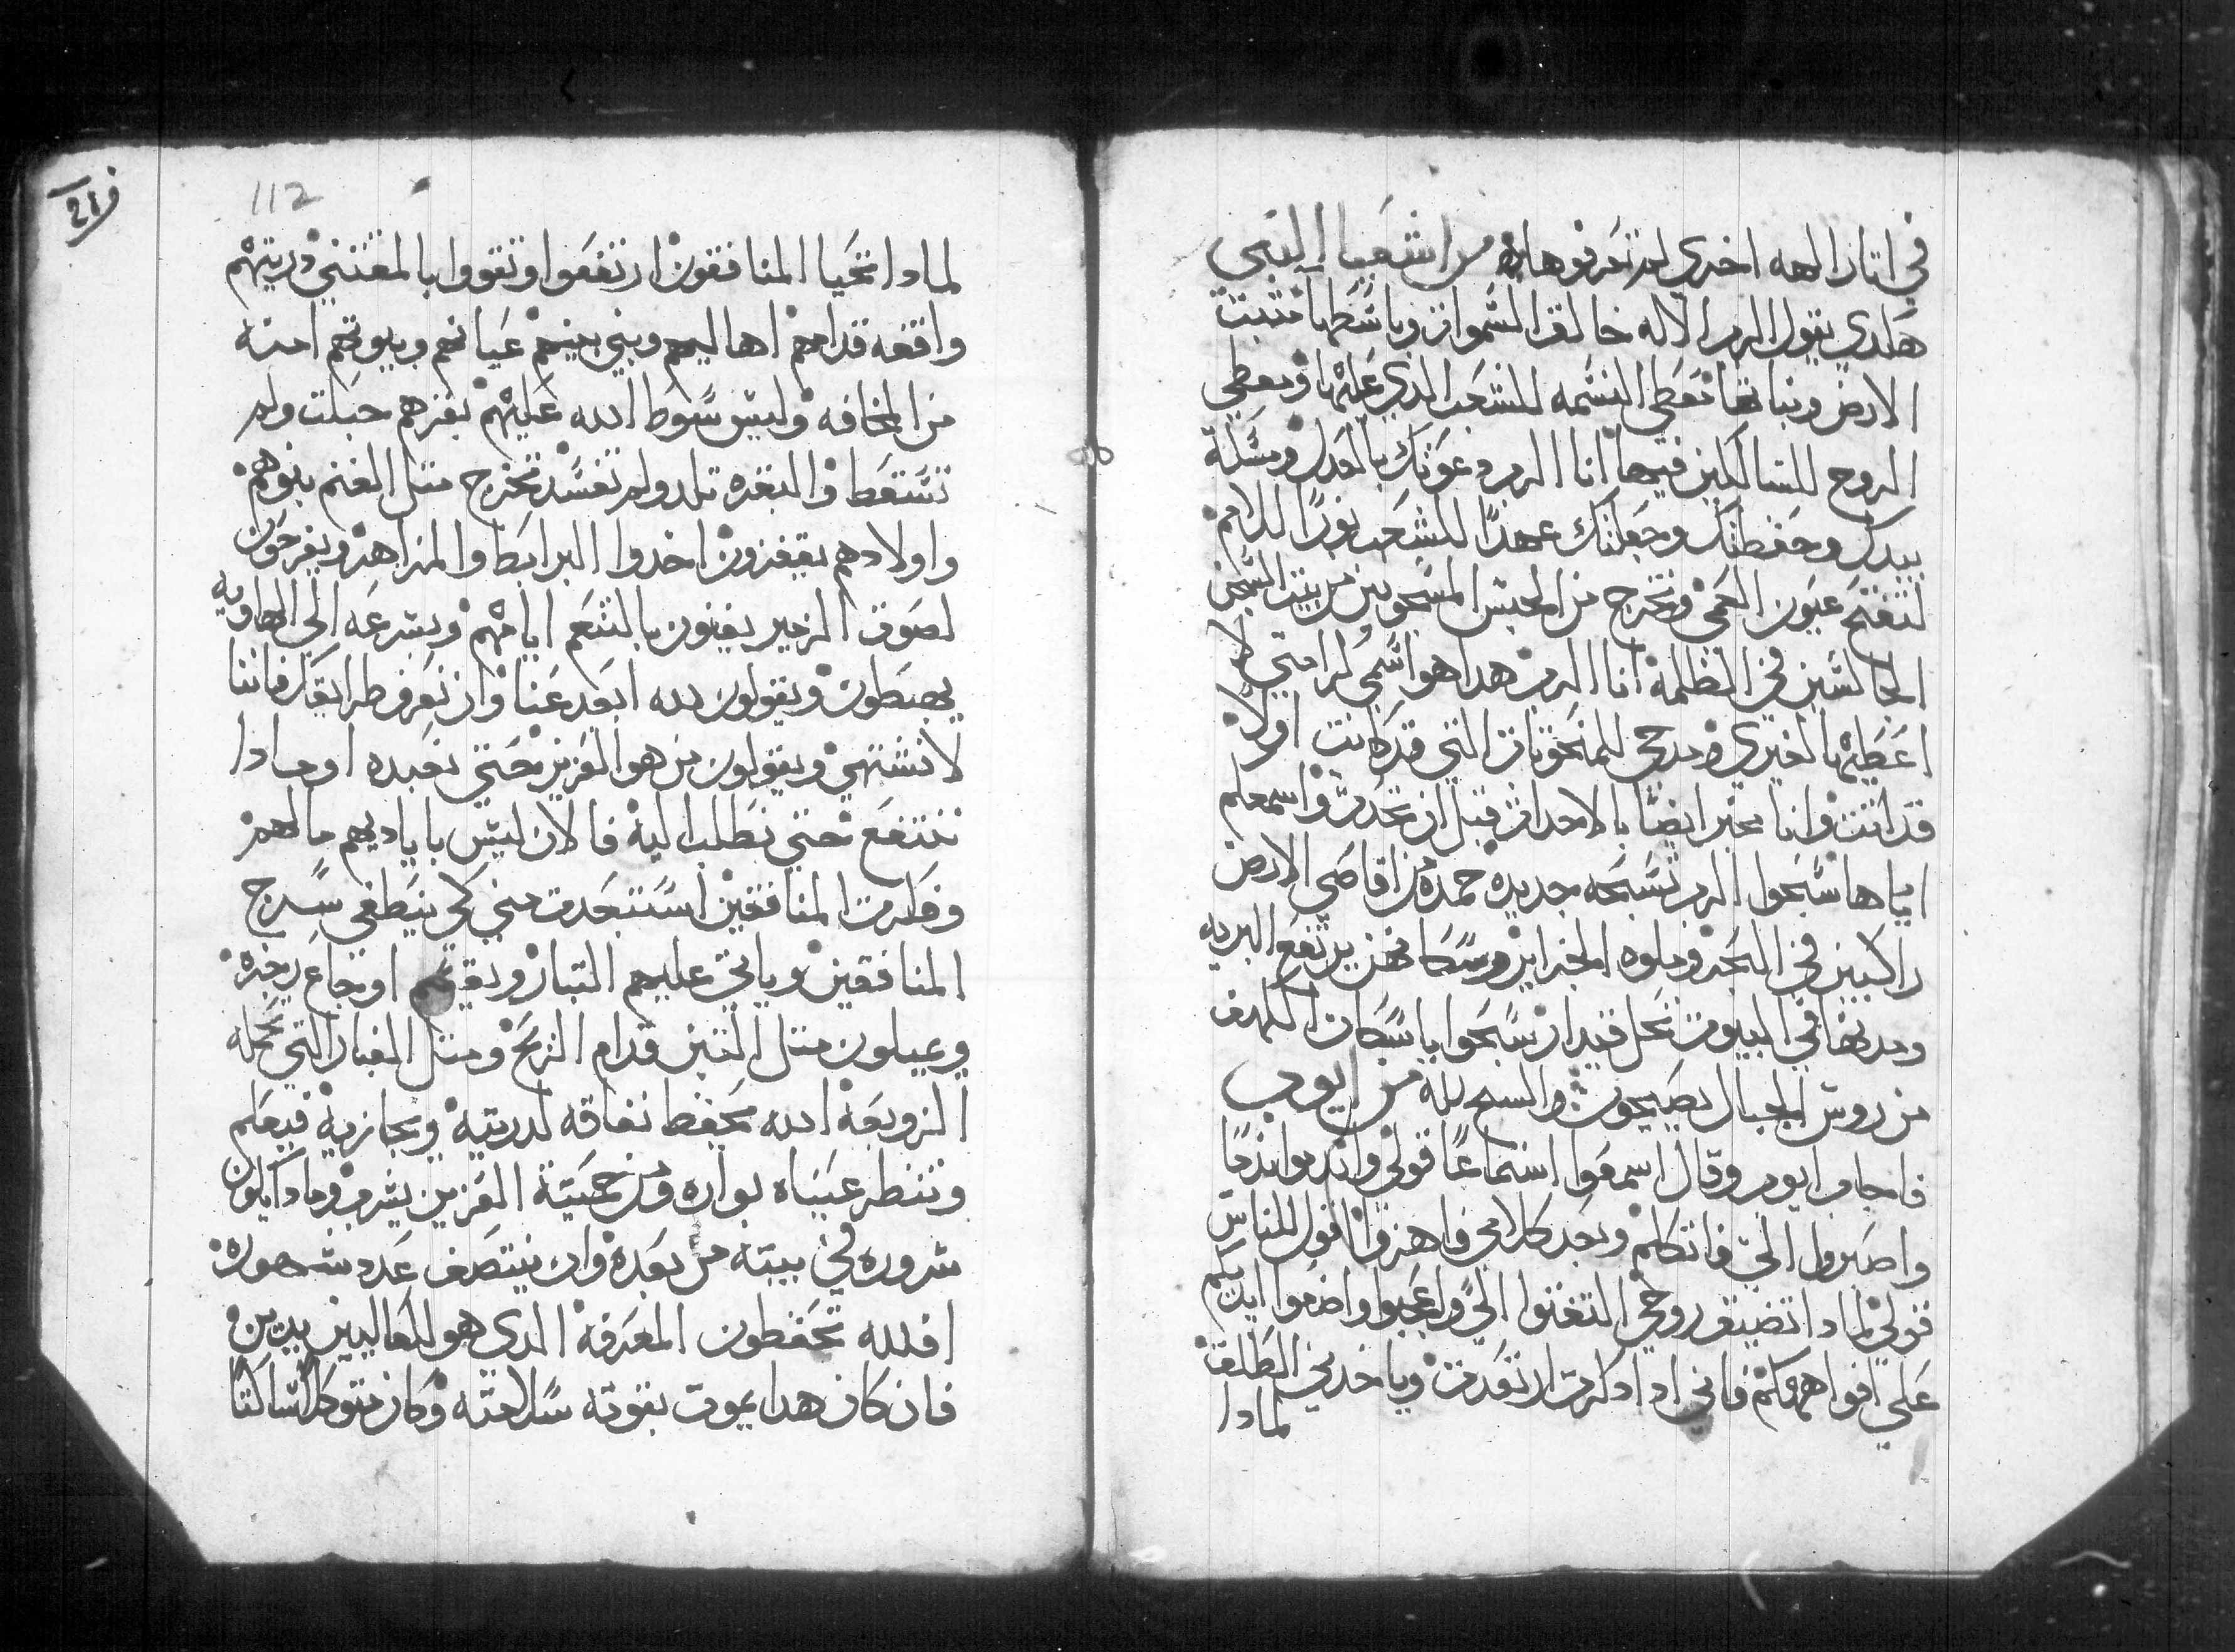 في اتار الهه اخري لم تعرفوها من اشعيا النبي
هكدي يقول الرب الاله خالق السموات وباسطها مثبت
الارض ونباتها تعطي النسمه للشعب الدي عليها ويعطي
الروح للسالكين فيها انا الرب دعوتك بالعدل ومسكت
بيدك وحفظتك وجعلتك عهدًا للشعب نورًا للامم
لتفتح عيون العمي وتخرج من الحبس المسجونين من بيت السجن
الجالسين في الظلمه انا الرب هدا هو اسمي كرامتي لا
اعطيها لغيري ومدحي للمنحوتات التي قد كانت اولا
قد اتت وانا مخبر ايضًا بالاحدات قبل ان تحدت واسمعكم
اياها سبحوا الرب تسبحه جديده حمده من اقاصي الارض
راكبين في البحر وملوه الجزاير وسكانهن يرتفع البريه
ومدنها في البيوت تحل قيدار سبحوا يا سكان الكهف
من روس الجبال يصيحون والسبح لله من ايوب
فاجاب ايوب وقال اسمعوا استماعًا قولي واندموا ندمًا
واصبروا الي فاتكلم وبعد كلامي فاهزوا اقول للناس
قولي لمادا تضيق روحي التفتوا الي واعجبوا واضعوا ايديكم
علي افواهكم فاني ادا دكرت ارتعدت وياخدني الطلق
لمادا
112
لمادا تحيا المنافقون ارتفعوا وتقووا بالمقتني دريتهم
واقفه قدامهم اهاليهم وبني بنيهم عيانهم وبيوتهم امنه
من المخافه وليس سوط الله عليهم بقرهم حبلت ولم
تسقط والبقره تلد ولم تفسد تخرج متل الغنم بنوهم
واولادهم يقفزون اخدوا البرابط والمزاهر ويفرحون
لصوت الزمير يفنون بالتنعم ايامهم وبسرعه الي الهاويه
يهبطون ويقولون لله ابعد عنا وان نعرف طرايقك فاننا
لا نشتهي ويقولون من هو العزيز حتي نعبده او مادا
ننتفع حتي نطلب اليه فالان ليس باياديهم مالهم
وفكرت المنافقين استبعدت مني كي ينطفي سرج
المنافقين وياتي عليهم التبار او تجاع رجزه
ويميلون متل التبن قدام الريح ومتل الغبار التي تحمله
الزوبعه الله يحفظ نفاقه لدريته ويجازيه فيعلم
وتنظر عيناه بواره ومن حميته العزيز يشرب وما دا يكون
سروره في بيته من بعده وان ينتصف عدد شهوره
افلله تحفظون المعرفه الدي هو للعاليين يدين
فان كان هدا يموت بقوته سلامته وكان متوكلا ساكنا